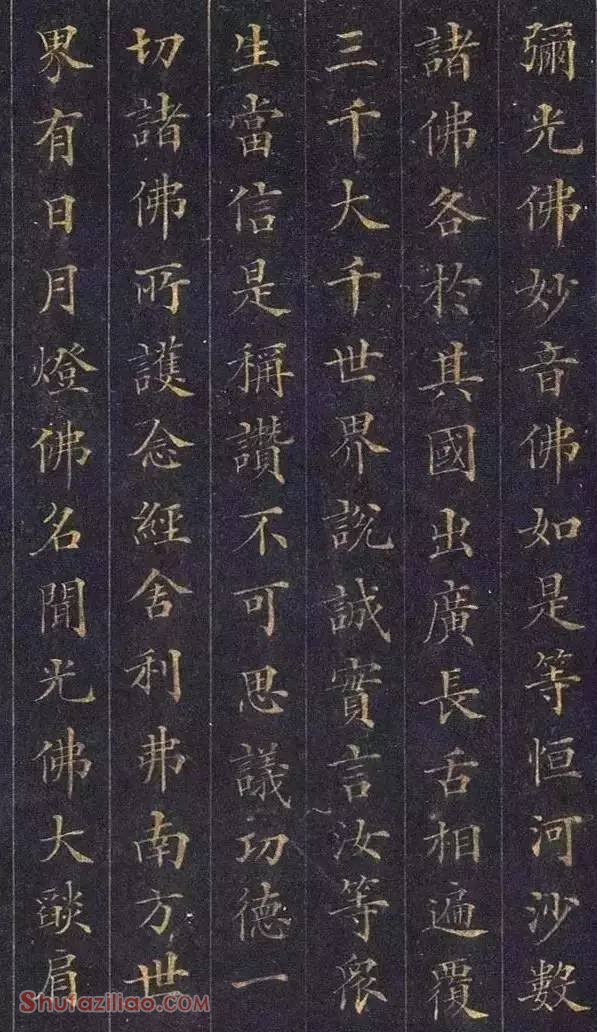 彌光佛妙音佛如是等恒河沙數
諸佛各於其國出廣長舌相遍覆
三千大千世界說誠實言汝等眾
生當信是稱讚不可思議功德一
切諸佛所護念經舍利弗南方世
界有日月燈佛名聞光佛大燄肩
Shufaziliao.COM